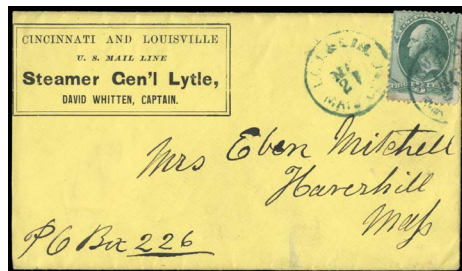 CINCINNATI AND LOUISVILLE
U. S. MAIL LINE
Steamer Gen'l Lytle,
DAVID WHITTEN, CAPTAIN.
Mrs Eben Mitchell
Haverhill
Mass
PO Box 226